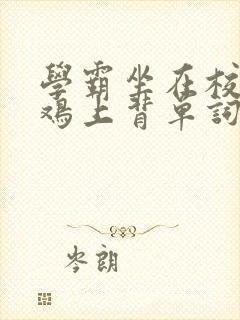 學霸坐在校
鸡上背單詞
岑朗